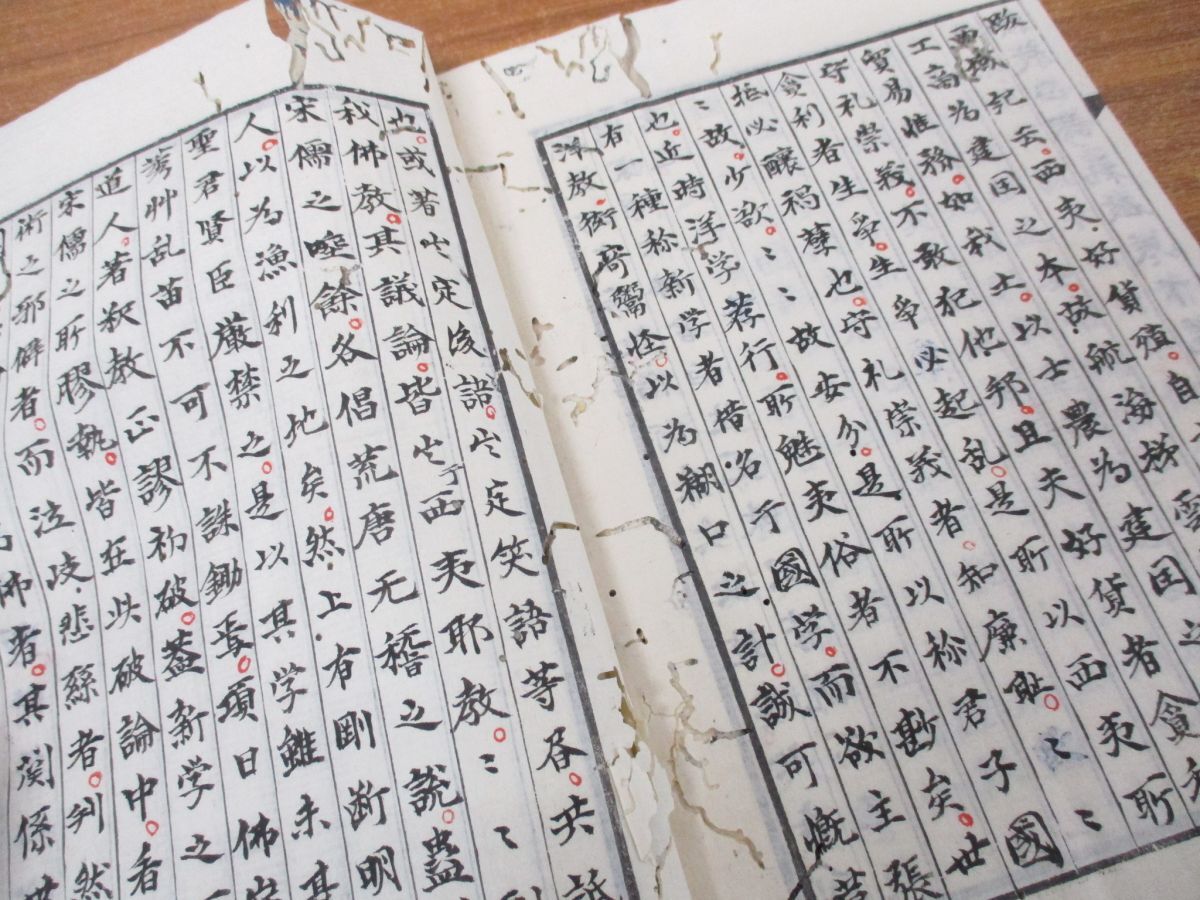 跋
西域記云西夷好貨殖自
工商為建国之本故航海梯
貿易惟務如我土以士農為建国
守礼崇義不敢犯他邦且夫好貨者貪
貪利者生爭生爭必起乱是所以西夷所
抵必醸禍孽也守礼崇義者知廉恥
故少歟故安分是所以称君子國
也近時洋学荐行所魁夷俗者不尠矣世
有一種称新学者借名于國学而欲主張
洋教衒奇鬻怪以為糊口之計誠可慨
也或著出定後語出定笑語等
我佛教其議論皆出于西夷耶教
宋儒之唾餘各倡荒唐无稽之説蓋
人以為漁利之地矣然上有剛断明
聖君賢臣厳禁之是以其学雖未甚
莠艸乱苗不可不誅鋤焉頃日佛
道人著釈教正謬初破蓋新学之
宋儒之所膠執皆在此破論中看
術之邪僻者而泣岐悲絲者判然
佛者其関係世